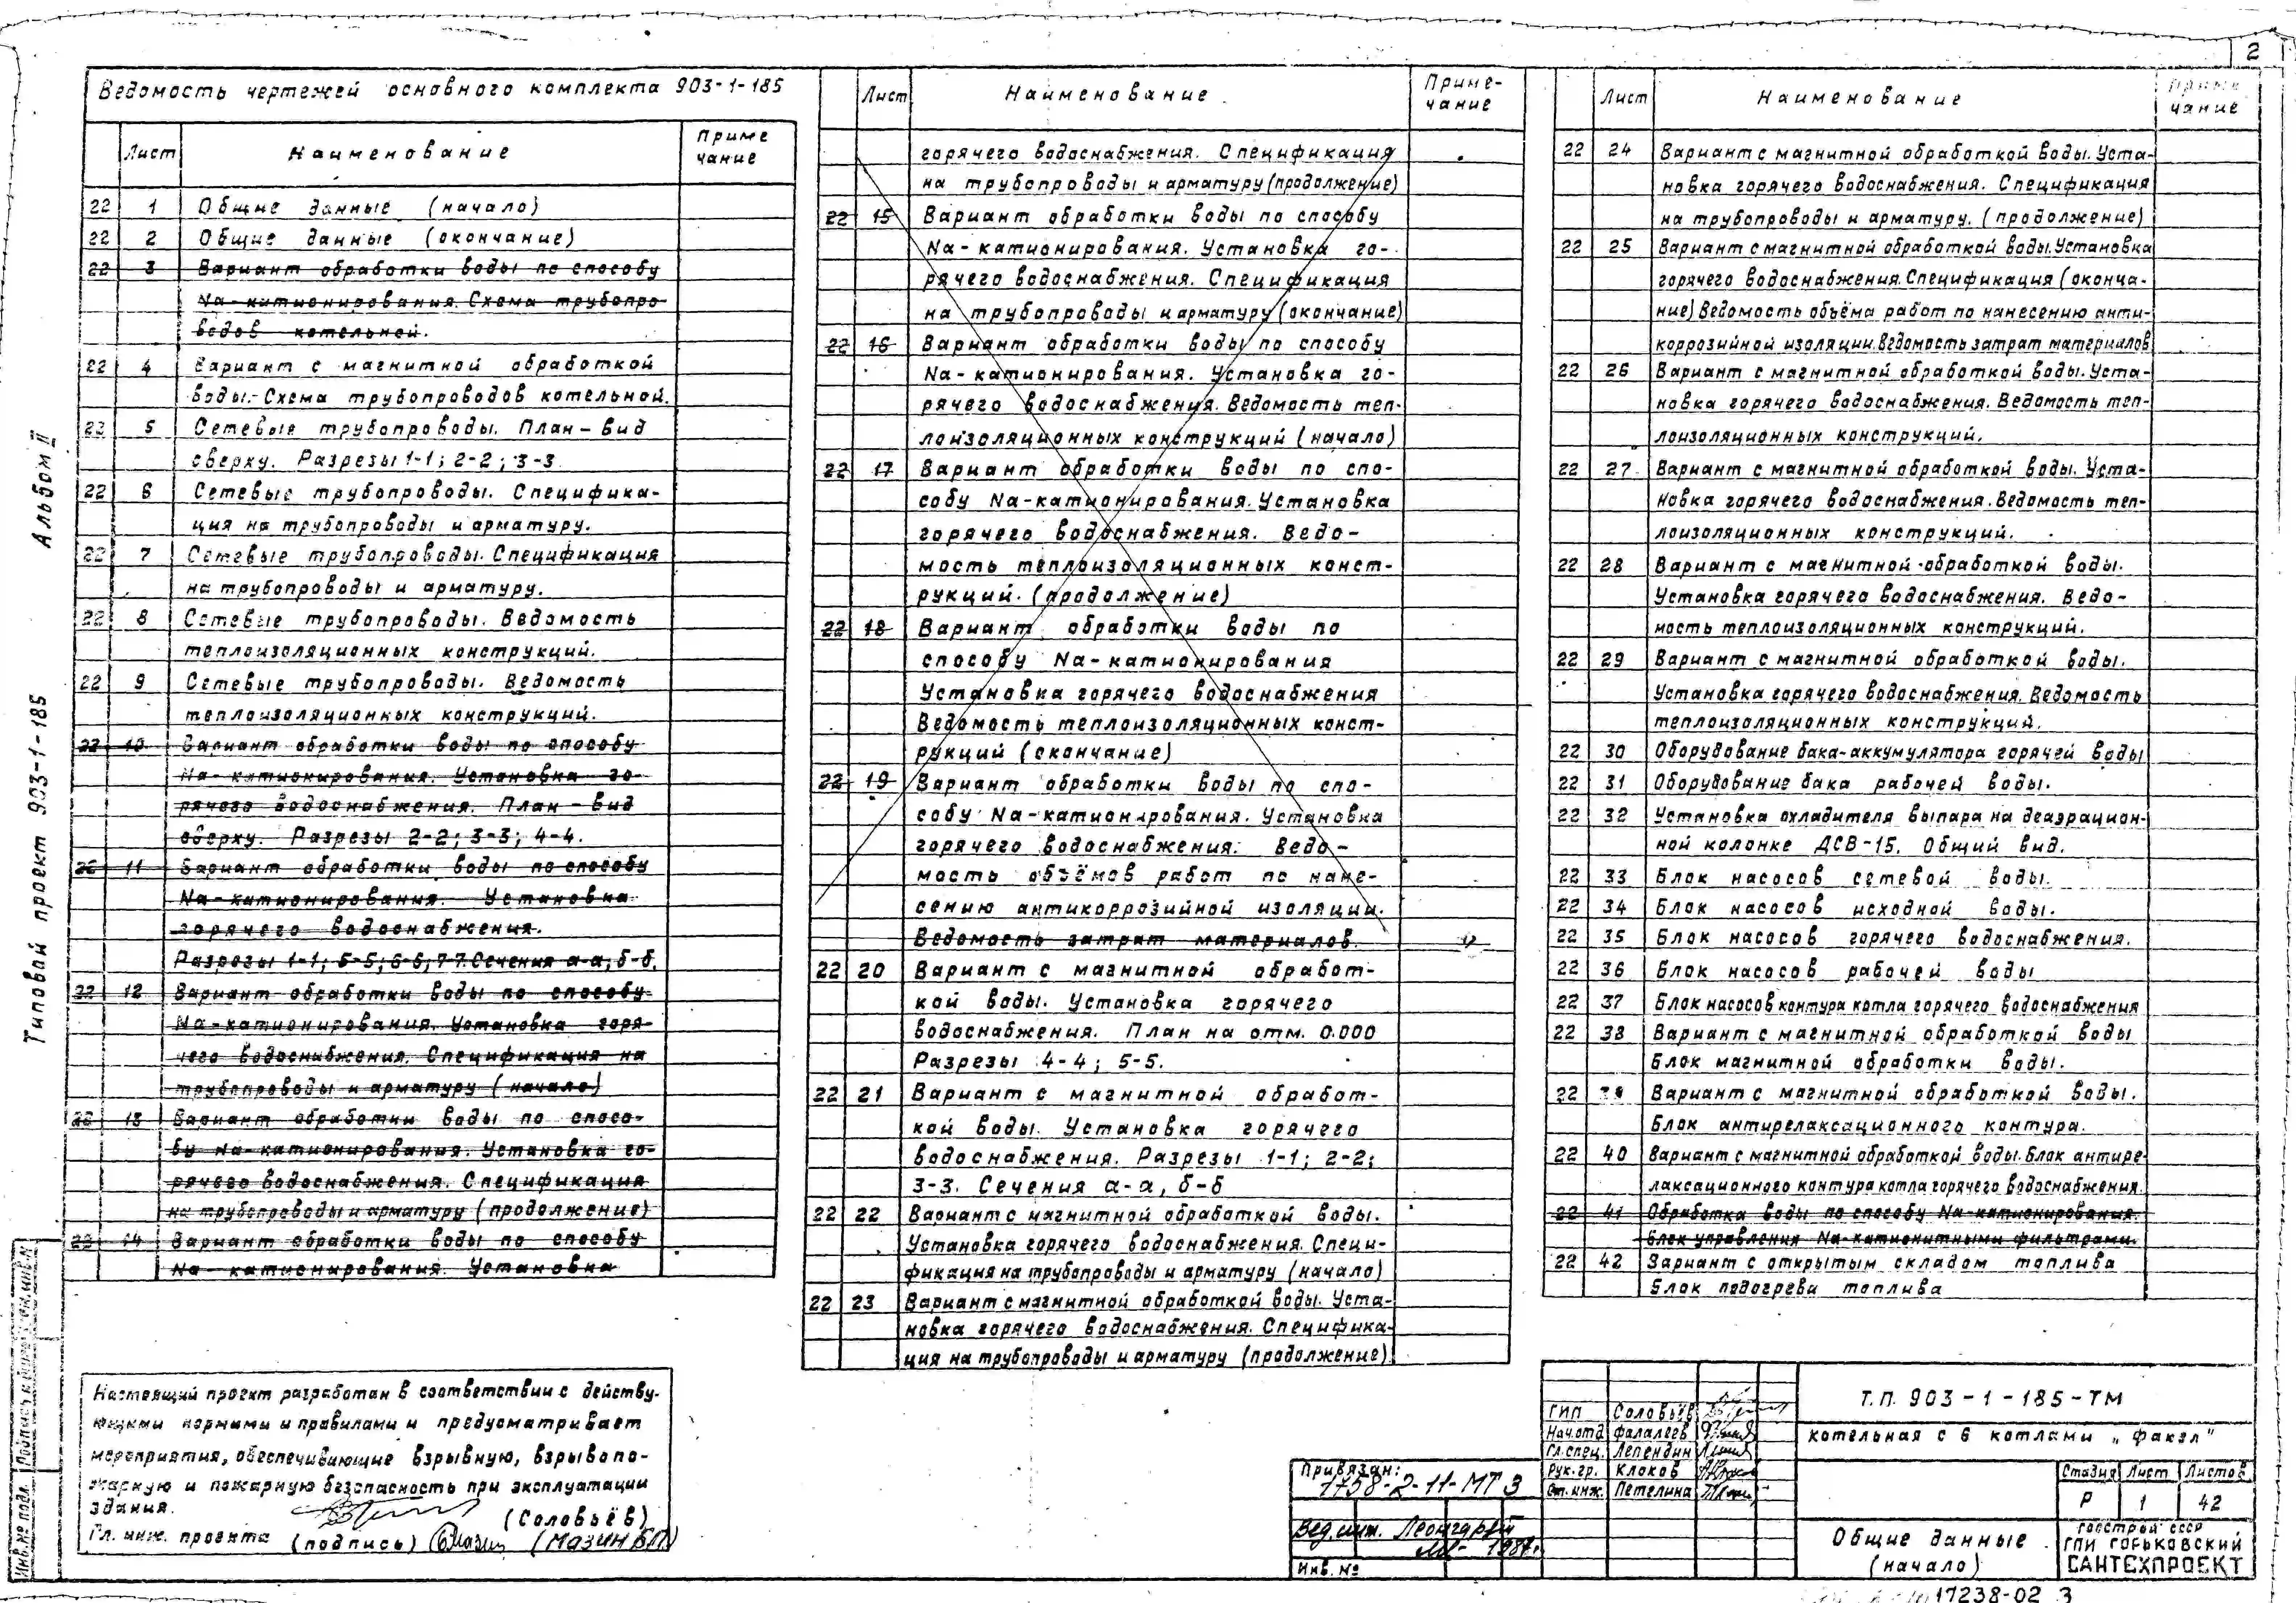 2
Ведомость чертежей основного комплекта 903-1-185
Лист Наименование Приме
чание
22 1 Общие данные (начало)
22 2 Общие данные (окончание)
22 3 Вариант обработки воды по способу
Na-катионирования. Схема трубопро-
водов котельной.
22 4 Вариант с магнитной обработкой
воды.-Схема трубопроводов котельной.
22 5 Сетевые трубопроводы. План-вид
сверху. Разрезы 1-1; 2-2; 3-3
22 6 Сетевые трубопроводы. Специфика-
ция на трубопроводы и арматуру.
22 7 Сетевые трубопроводы. Спецификация
на трубопроводы и арматуру.
22 8 Сетевые трубопроводы. Ведомость
теплоизоляционных конструкций.
22 9 Сетевые трубопроводы. Ведомость
теплоизоляционных конструкций.
22 10 Вариант обработки воды по способу
Na-катионирования. Установка го-
рячего водоснабжения. План-вид
сверху. Разрезы 2-2; 3-3; 4-4.
22 11 Вариант обработки воды по способу
Na-катионирования. Установка
горячего водоснабжения.
Разрезы 1-1; 5-5; 6-6; 7-7. Сечения а-а, б-б.
22 12 Вариант обработки воды по способу
Na-катионирования. Установка горя-
чего водоснабжения. Спецификация на
трубопроводы и арматуру (начало)
22 13 Вариант обработки воды по спосо-
бу Na-катионирования. Установка го-
рячего водоснабжения. Спецификация
на трубопроводы и арматуру (продолжение)
22 14 Вариант обработки воды по способу
Na-катионирования. Установка
Лист Наименование Приме-
чание
горячего водоснабжения. Спецификация
на трубопроводы и арматуру (продолжение)
22 15 Вариант обработки воды по способу
Na-катионирования. Установка го-
рячего водоснабжения. Спецификация
на трубопроводы и арматуру (окончание)
22 16 Вариант обработки воды по способу
Na-катионирования. Установка го-
рячего водоснабжения. Ведомость теп-
лоизоляционных конструкций (начало)
22 17 Вариант обработки воды по спо-
собу Na-катионирования. Установка
горячего водоснабжения. Ведо-
мость теплоизоляционных конст-
рукций. (продолжение)
22 18 Вариант обработки воды по
способу Na-катионирования
Установка горячего водоснабжения
Ведомость теплоизоляционных конст-
рукций (окончание)
22 19 Вариант обработки воды по спо-
собу Na-катионирования. Установка
горячего водоснабжения. Ведо-
мость объёмов работ по нане-
сению антикоррозийной изоляции.
Ведомость затрат материалов.
22 20 Вариант с магнитной обработ-
кой воды. Установка горячего
водоснабжения. План на отм. 0.000
Разрезы 4-4; 5-5.
22 21 Вариант с магнитной обработ-
кой воды. Установка горячего
водоснабжения. Разрезы 1-1; 2-2;
3-3. Сечения а-а, б-б
22 22 Вариант с магнитной обработкой воды.
Установка горячего водоснабжения. Специ-
фикация на трубопроводы и арматуру (начало)
22 23 Вариант с магнитной обработкой воды. Уста-
новка горячего водоснабжения. Специфика-
ция на трубопроводы и арматуру (продолжение)
Лист Наименование Приме
чание
22 24 Вариант с магнитной обработкой воды. Уста-
новка горячего водоснабжения. Спецификация
на трубопроводы и арматуру. (продолжение)
22 25 Вариант с магнитной обработкой воды. Установка
горячего водоснабжения. Спецификация (оконча-
ние) Ведомость объёма работ по нанесению анти-
коррозийной изоляции. Ведомость затрат материалов
22 26 Вариант с магнитной обработкой воды. Уста-
новка горячего водоснабжения. Ведомость теп-
лоизоляционных конструкций.
22 27 Вариант с магнитной обработкой воды. Уста-
новка горячего водоснабжения. Ведомость теп-
лоизоляционных конструкций.
22 28 Вариант с магнитной обработкой воды.
Установка горячего водоснабжения. Ведо-
мость теплоизоляционных конструкций.
22 29 Вариант с магнитной обработкой воды.
Установка горячего водоснабжения. Ведомость
теплоизоляционных конструкций.
22 30 Оборудование бака-аккумулятора горячей воды
22 31 Оборудование бака рабочей воды.
22 32 Установка охладителя выпара на деаэрацион-
ной колонке ДСВ-15. Общий вид.
22 33 Блок насосов сетевой воды.
22 34 Блок насосов исходной воды.
22 35 Блок насосов горячего водоснабжения.
22 36 Блок насосов рабочей воды
22 37 Блок насосов контура котла горячего водоснабжения
22 38 Вариант с магнитной обработкой воды
Блок магнитной обработки воды.
22 39 Вариант с магнитной обработкой воды.
Блок антирелаксационного контура.
22 40 Вариант с магнитной обработкой воды. Блок антире-
лаксационного контура котла горячего водоснабжения.
22 41 Обработка воды по способу Na-катионирования.
Блок управления Na-катионитными фильтрами.
22 42 Вариант с открытым складом топлива
Блок подогрева топлива
Альбом II
Типовой проект 903-1-185
Инв.№ подл.
Настоящий проект разработан в соответствии с действу-
ющими нормами и правилами и предусматривает
мероприятия, обеспечивающие взрывную, взрывопо-
жарную и пожарную безопасность при эксплуатации
здания.
(Соловьёв)
Гл. инж. проекта (подпись) (Мазин БП)
Привязан:
1758-2-11-МТ3
Вед. инж. Леонгардт
1984г.
Инв. №
ГИП Соловьёв
Нач.отд Фалалеев
Гл.спец. Лепендин
Рук.гр. Клоков
Ст.инж. Петелина
Т.П. 903-1-185-ТМ
Котельная с 6 котлами „Факел"
Стадия Лист Листов
Р 1 42
Общие данные
(начало)
Госстрой СССР
ГПИ Горьковский
САНТЕХПРОЕКТ
17238-02 3